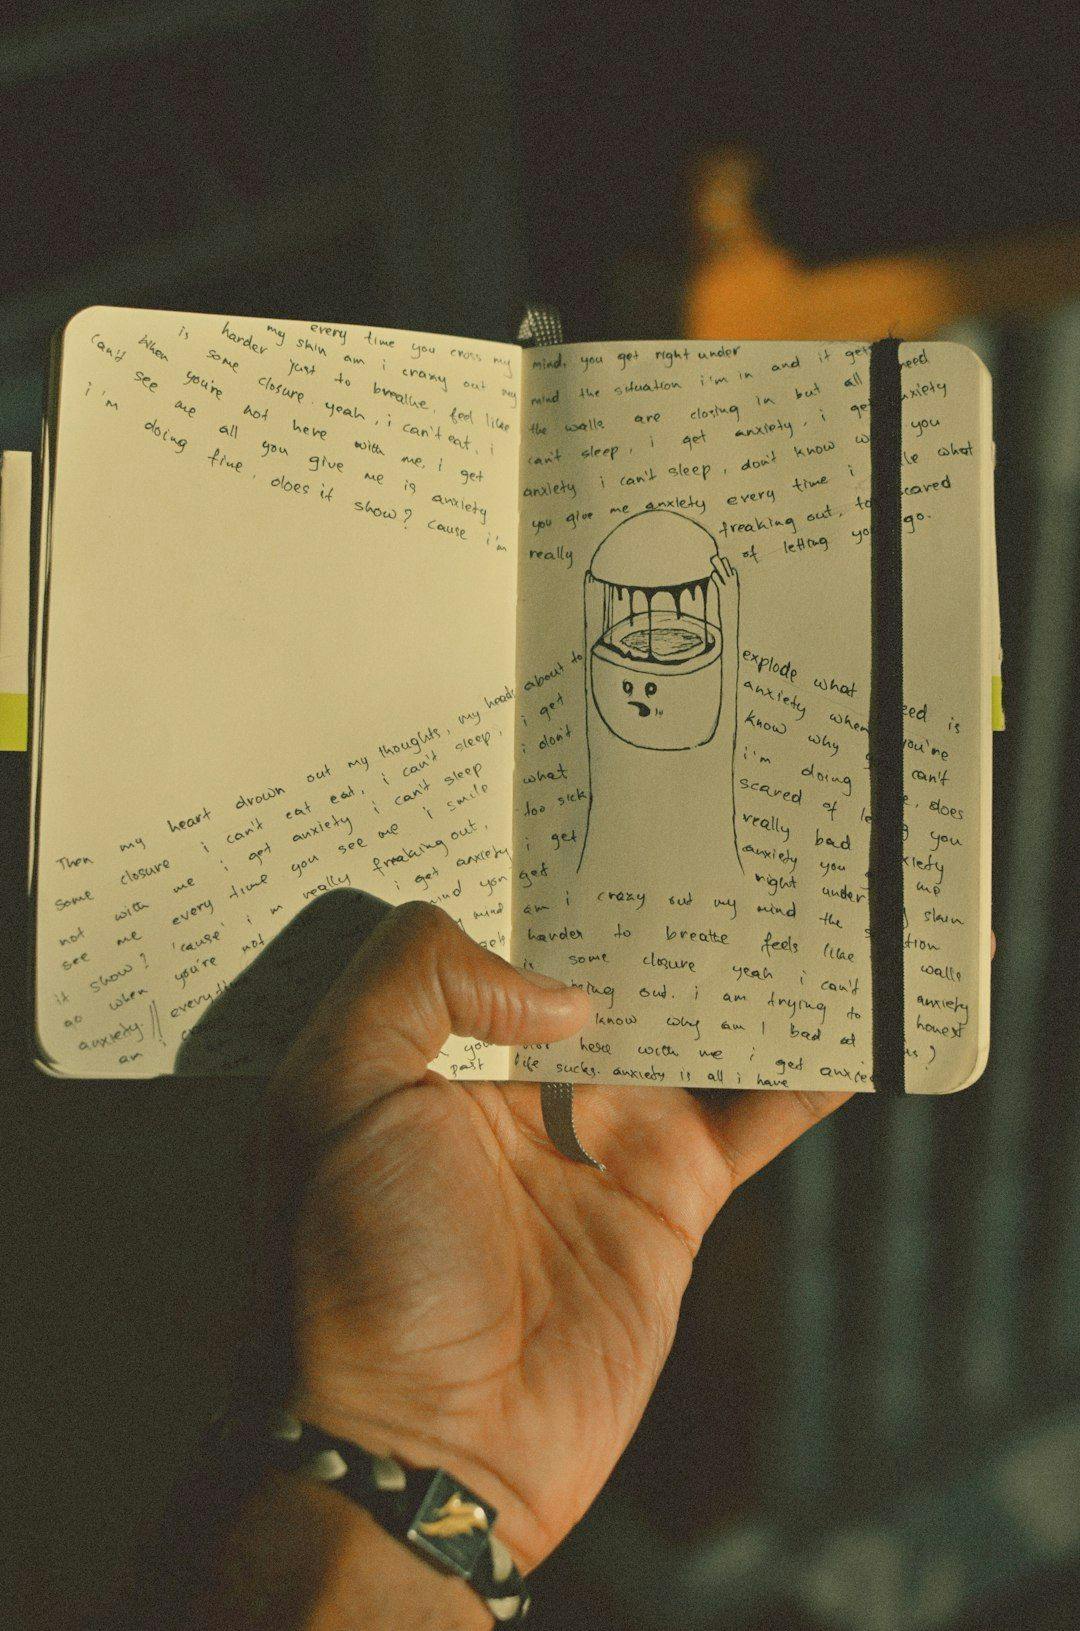 my every time you cross my mind, you get right under
is harder my skin am i crazy out my mind the situation i'm in and it gets
when some just to breathe, feel like the walls are closing in but all need
can't you're closure. yeah, i can't eat, i can't sleep, i get anxiety, i get anxiety
see me not here with me, i get anxiety i can't sleep, don't know you
i'm all you give me is anxiety you give me anxiety every time i what
doing fine, does it show? cause i'm really freaking out, scared
of letting go.
Then my heart drown out my thoughts, my heads about to explode what
some closure i can't eat eat, i can't sleep, i get anxiety when need is
not with me i get anxiety i can't sleep i don't know why you're
see me every time you see me i smile what i'm doing can't
it show? 'cause' i'm really freaking out, too sick scared of does
go when you're not i get anxiety i get really bad you
anxiety. mind you get anxiety you
an i mind right under me
am i crazy out my mind the skin
harder to breathe feels like
is some closure yeah i can't walls
out. i am trying to anxiety
know why am I bad at honest
here with me i get
past life sucks. anxiety is all i have